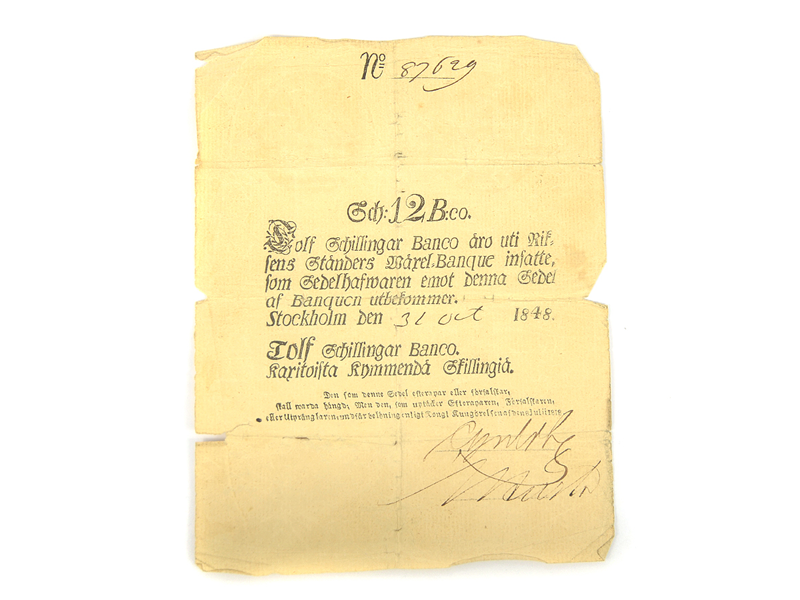 No 87629
Sch: 12 B:co.
Tolf Schillingar Banco äro uti Rik-
sens Ständers Wäxel-Banque insatte,
som Sedelhafwaren emot denna Sedel
af Banquen utbekommer.
Stockholm den 31 Oct 1848.
Tolf Schillingar Banco.
Kaxitoista Kymmendä Skillingiä.
Den som denne Sedel efterapar eller förfalskar,
skall warda hängd; Men den, som uptäcker Efteraparen, Förfalskaren,
eller Utprånglaren, undfår belöning enligt Kongl Kungörelsen af den